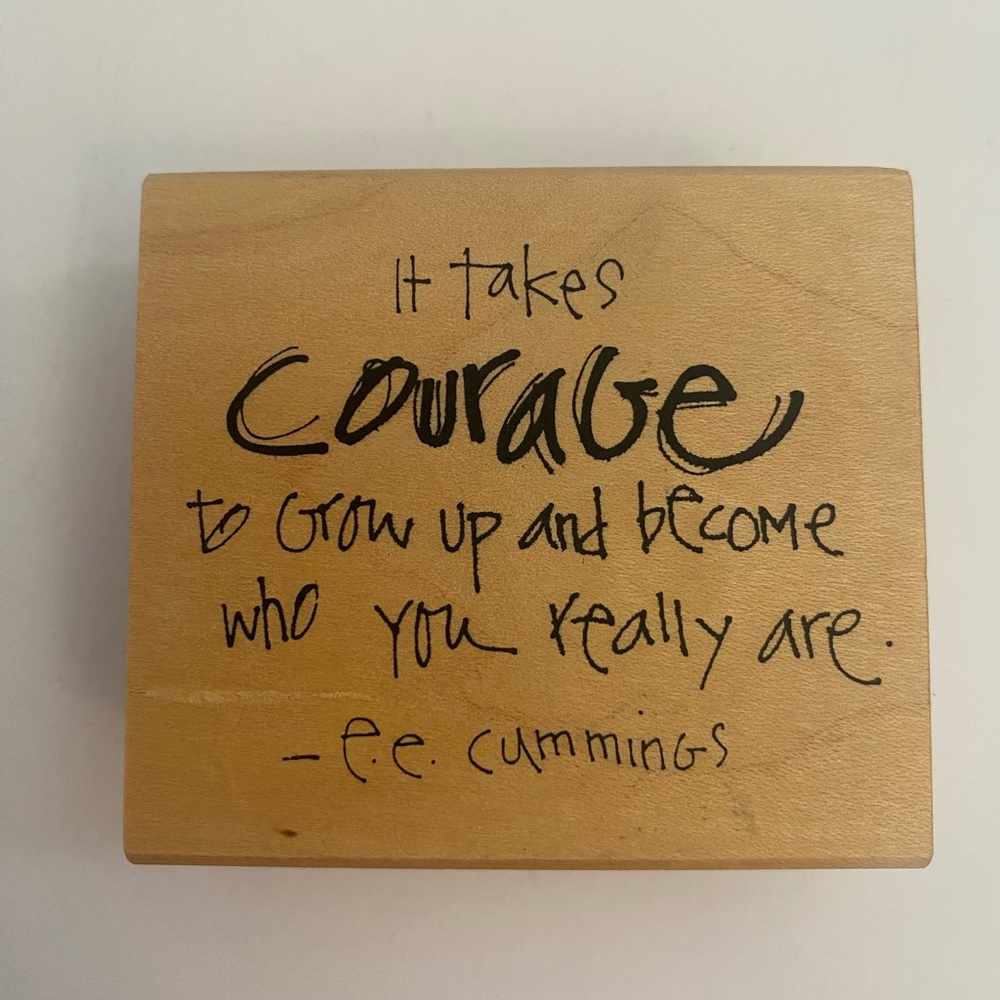 It takes
courage
to Grow up and become
who you really are.
- e.e. cummings